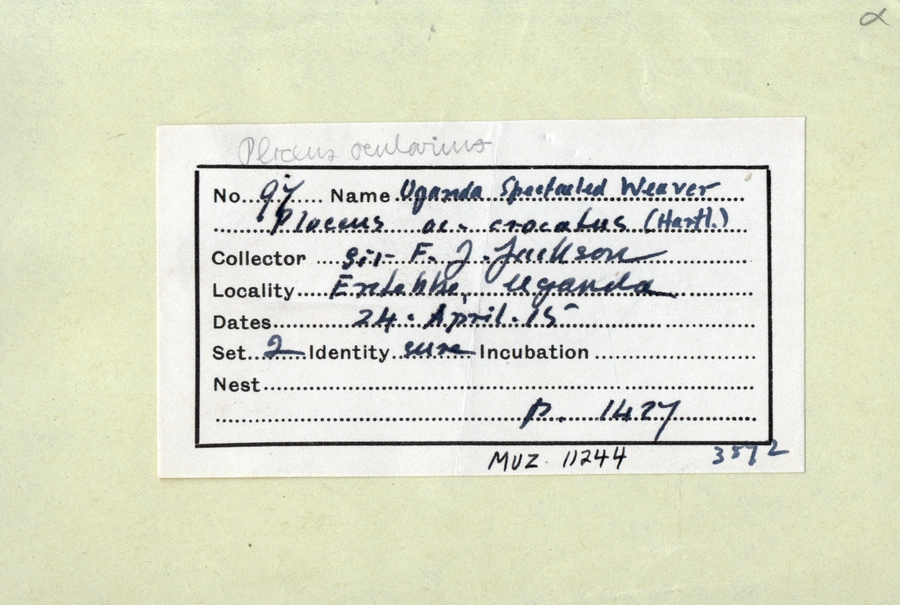 α
Ploceus ocularius
No. 97 Name Uganda Spectacled Weaver
Ploceus oc. crocatus (Hartl.)
Collector Sir F. J. Jackson
Locality Entebbe, Uganda
Dates 24. April. 15
Set 2 Identity sure Incubation
Nest
p. 1427
MUZ 11244 3572